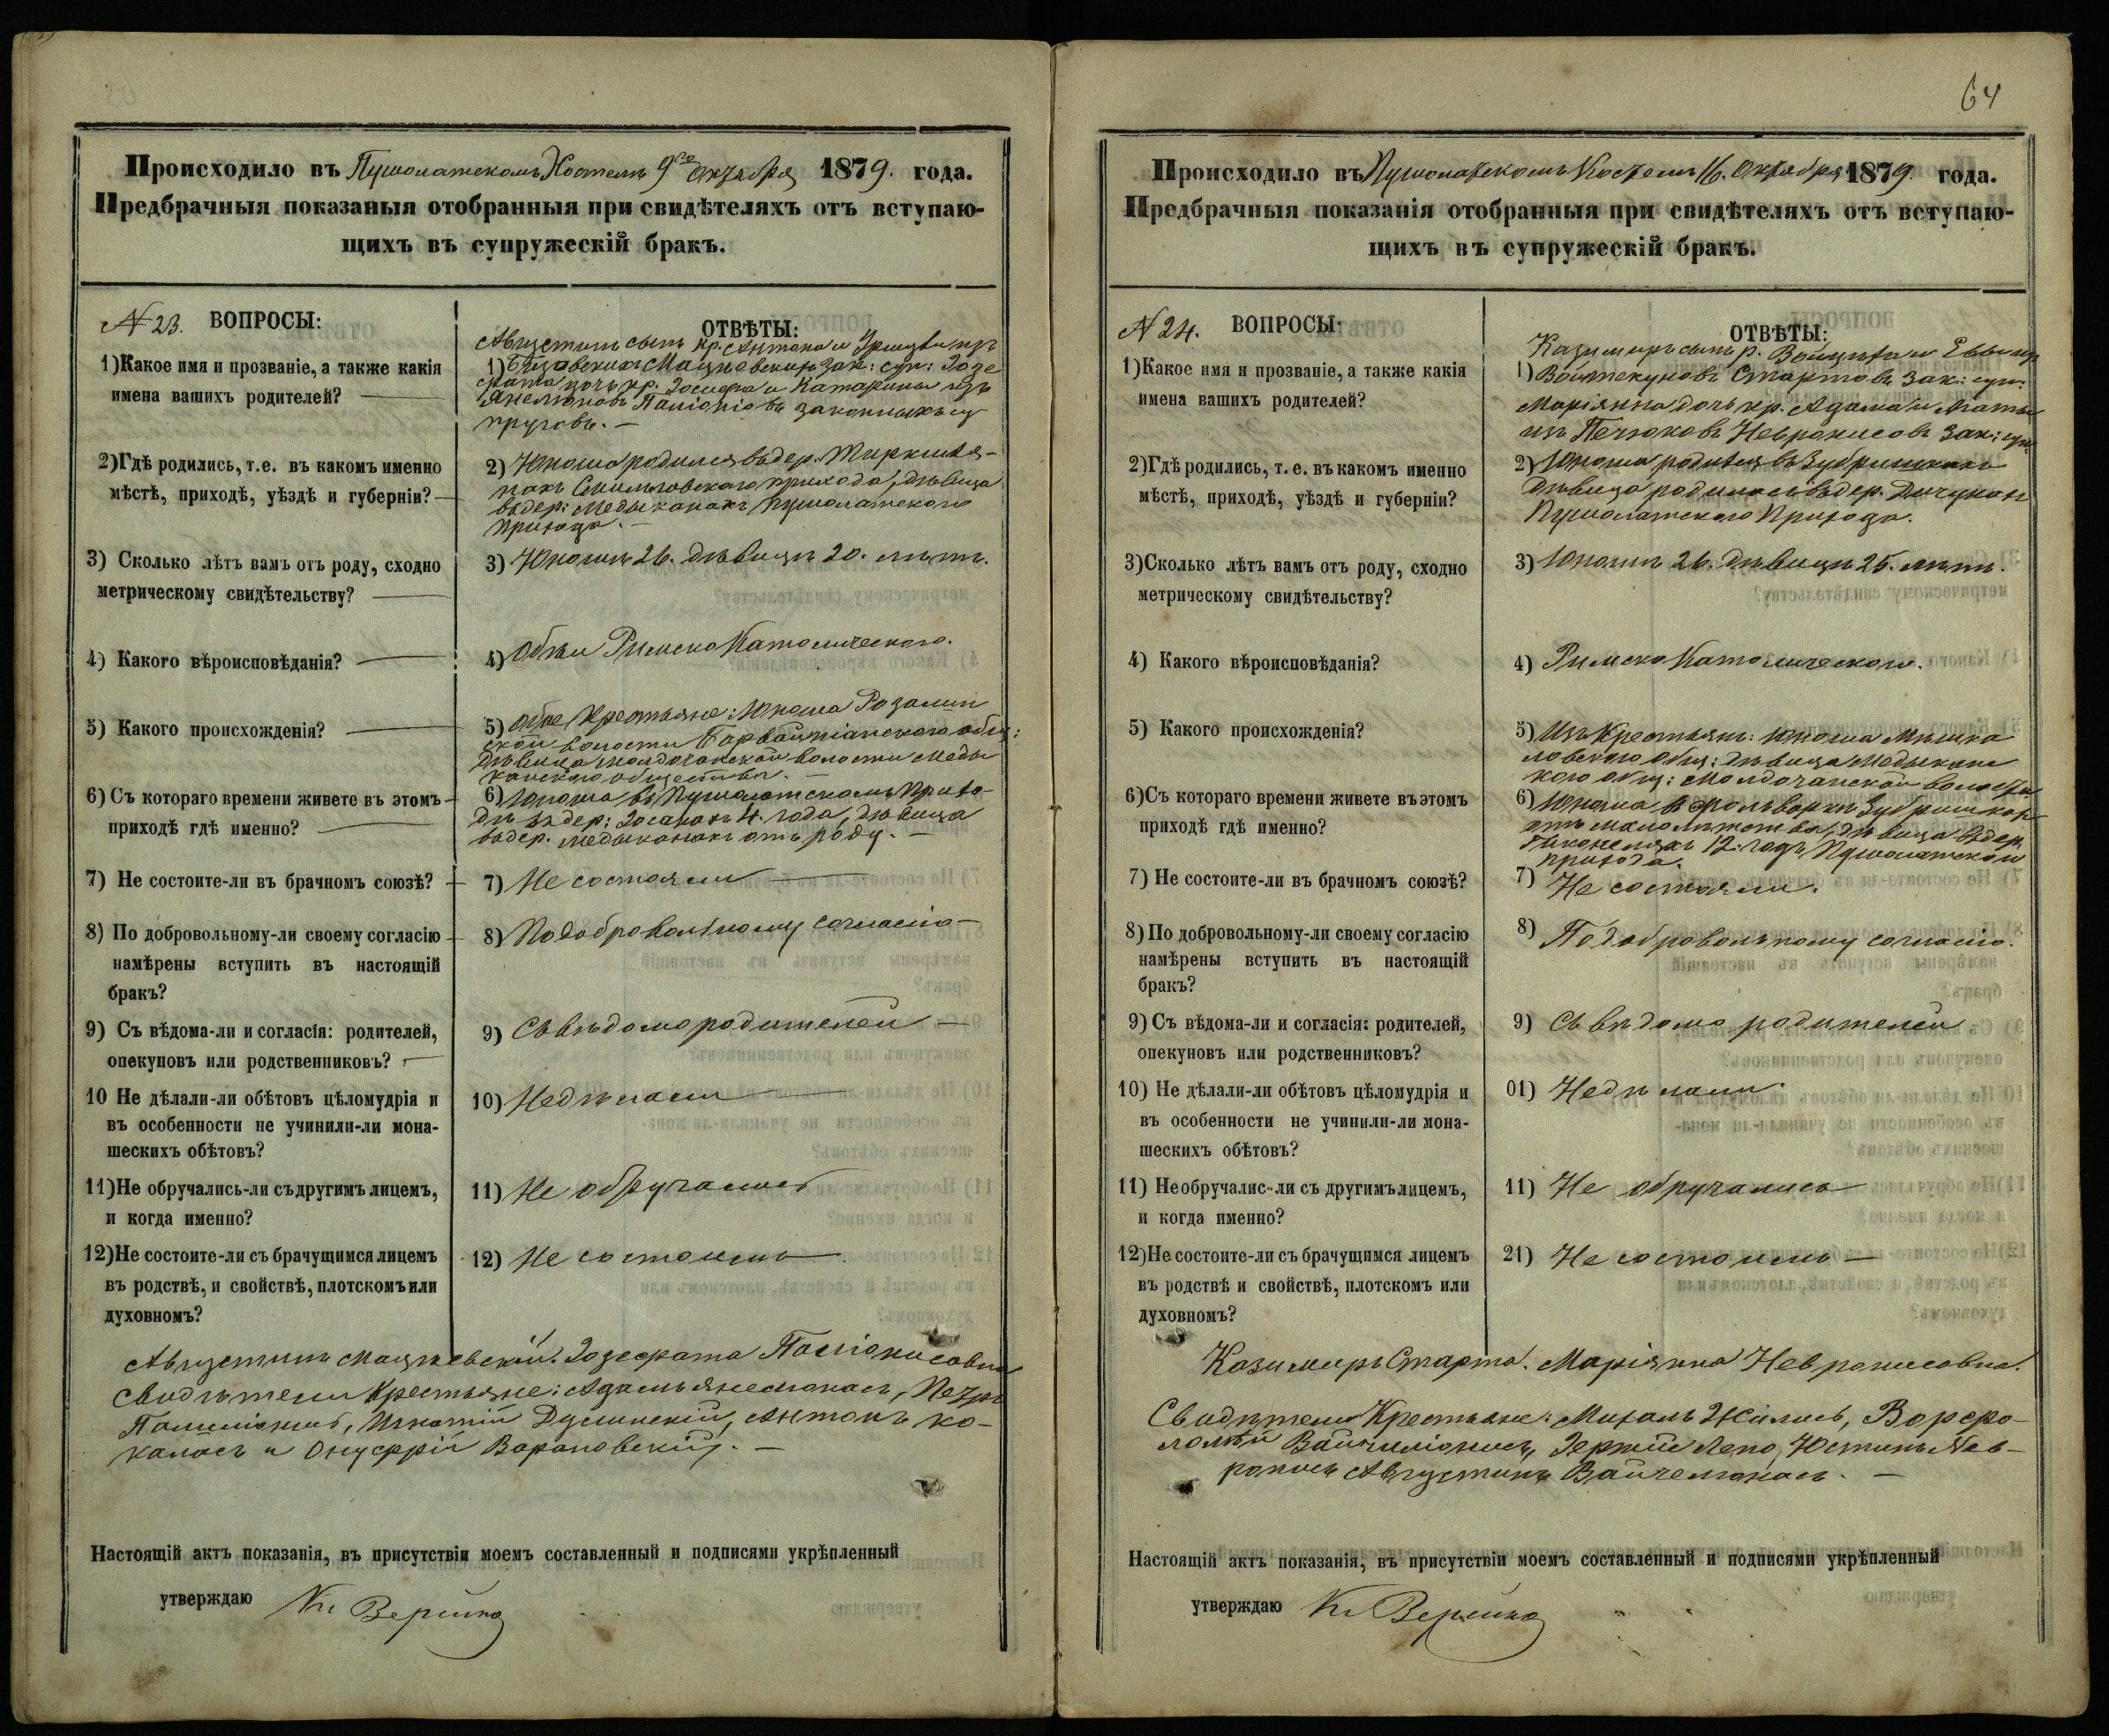 Происходило въ Пушолатскомъ Костелѣ 9го Октября 1879. года.
Предбрачныя показаныя отобранныя при свидѣтеляхъ отъ вступаю-
щихъ въ супружескій бракъ.
N 23. ВОПРОСЫ:
ОТВѢТЫ:
1) Какое имя и прозваніе, а также какія
имена вашихъ родителей?
Августинъ сынъ кр. Антона и
1) Мацкевскихъ Зак: суп:
дочь кр. Іосифа и Катарины изъ
законныхъ су
пруговъ. —
2) Гдѣ родились, т. е. въ какомъ именно
мѣстѣ, приходѣ, уѣздѣ и губерніи?
2) Юноша родился въ дер.
прихода, дѣвица
въ дер: Медыканахъ Пушолатского
прихода. —
3) Сколько лѣтъ вамъ отъ роду, сходно
метрическому свидѣтельству?
3) Юношѣ 26. дѣвицѣ 20. лѣтъ.
4) Какого вѣроисповѣданія?
4) Обѣи Римско Католического.
5) Какого происхожденія?
5) Обое Крестьяне: Юноша Розалин
ской волости общ:
дѣвица Молдочанской волости Меды
канского общества. —
6) Съ котораго времени живете въ этомъ
приходѣ гдѣ именно?
6) Юноша въ Пушолатскомъ прихо-
дѣ въ дер: 4. года, дѣвица
въ дер. Медыканахъ отъ роду. —
7) Не состоите-ли въ брачномъ союзѣ?
7) Не состояли
8) По добровольному-ли своему согласію
намѣрены вступить въ настоящій
бракъ?
8) По добровольному согласію
9) Съ вѣдома-ли и согласія: родителей,
опекуновъ или родственниковъ?
9) Съ вѣдомо родителей
10 Не дѣлали-ли обѣтовъ цѣломудрія и
въ особенности не учинили-ли мона-
шескихъ обѣтовъ?
10) Недѣлали
11) Не обручались-ли съ другимъ лицемъ,
и когда именно?
11) Не обручались
12) Не состоите-ли съ брачущимся лицемъ
въ родствѣ, и свойствѣ, плотскомъ или
духовномъ?
12) Не состоимъ
Августинъ Мацкевскій.
Свидѣтели Крестьяне: Адамъ Петръ
Игнатій Антонъ Ко-
калосъ и Онуфрій Вороновскій. —
Настоящій актъ показанія, въ присутствіи моемъ составленный и подписями укрѣпленный
утверждаю
64
Происходило въ Пушолатскомъ Костелѣ 16. Октября 1879 года.
Предбрачныя показанія отобранныя при свидѣтеляхъ отъ вступаю-
щихъ въ супружескій бракъ.
N 24. ВОПРОСЫ:
ОТВѢТЫ:
1) Какое имя и прозваніе, а также какія
имена вашихъ родителей?
Казимиръ сынъ Войцѣха и Евы изъ
1) Стартовъ Зак: суп:
Маріянна дочь кр. Адама и
изъ Невронисовъ Зак: суп:
2) Гдѣ родились, т. е. въ какомъ именно
мѣстѣ, приходѣ, уѣздѣ и губерніи?
2) Юноша родился въ Зубришкахъ
дѣвица родилась въ дер.
Пушолатского Прихода.
3) Сколько лѣтъ вамъ отъ роду, сходно
метрическому свидѣтельству?
3) Юношѣ 26. дѣвицѣ 25. лѣтъ.
4) Какого вѣроисповѣданія?
4) Римско Католического.
5) Какого происхожденія?
5) Изъ Крестьянъ: юноша Мишка
ловского общ: дѣвица Медыкан
кого общ: Молдочанской волости
6) Съ котораго времени живете въ этомъ
приходѣ гдѣ именно?
6) Юноша въ фольваркѣ Зубришкахъ
отъ малолѣтства, дѣвица въ дер.
12. годъ Пушолатского
прихода.
7) Не состоите-ли въ брачномъ союзѣ?
7) Не состояли.
8) По добровольному-ли своему согласію
намѣрены вступить въ настоящій
бракъ?
8) По добровольному согласію.
9) Съ вѣдома-ли и согласія: родителей,
опекуновъ или родственниковъ?
9) Съ вѣдомо родителей
10) Не дѣлали-ли обѣтовъ цѣломудрія и
въ особенности не учинили-ли мона-
шескихъ обѣтовъ?
01) Недѣлали.
11) Необручалис-ли съ другимъ лицемъ,
и когда именно?
11) Не обручались
12) Не состоите-ли съ брачущимся лицемъ
въ родствѣ и свойствѣ, плотскомъ или
духовномъ?
21) Не состоимъ —
Казимиръ Старта. Маріянна Невронисовна.
Свидѣтели Крестьяне: Михалъ Жилисъ, Ворфо-
ломей Юстинъ Нев-
ронисъ Августинъ
Настоящій актъ показанія, въ присутствіи моемъ составленный и подписями укрѣпленный
утверждаю